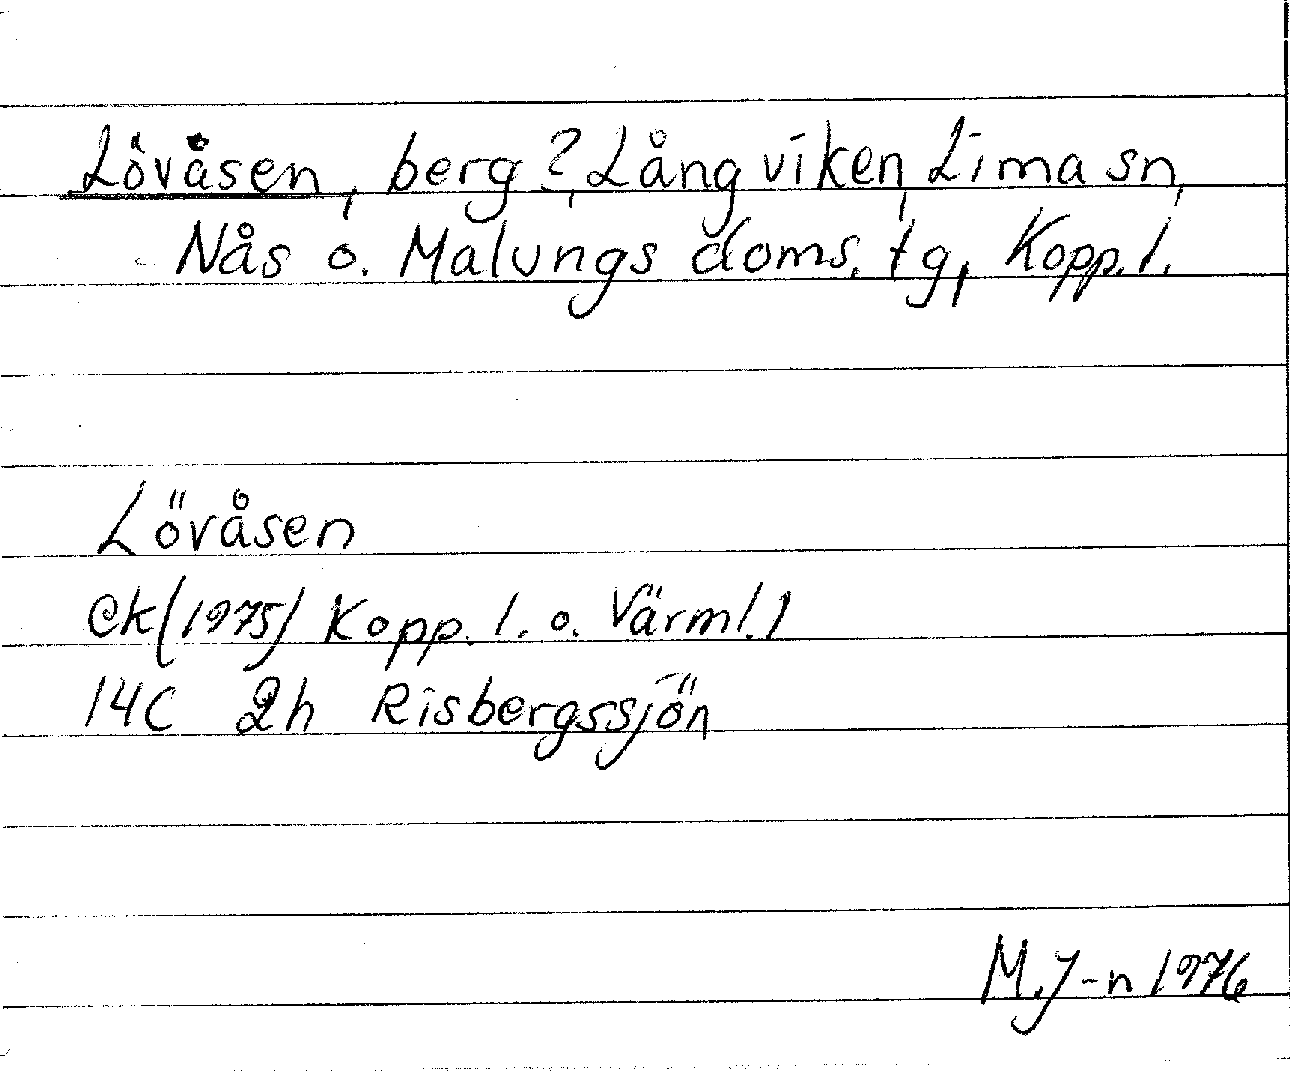 Lövåsen, berg?, Långviken, Lima sn,
Nås o. Malungs doms. tg, Kopp. l.
Lövåsen
ek (1975) Kopp. l. o. Värml. l
14C 2h Risbergssjön
M.J-n 1976